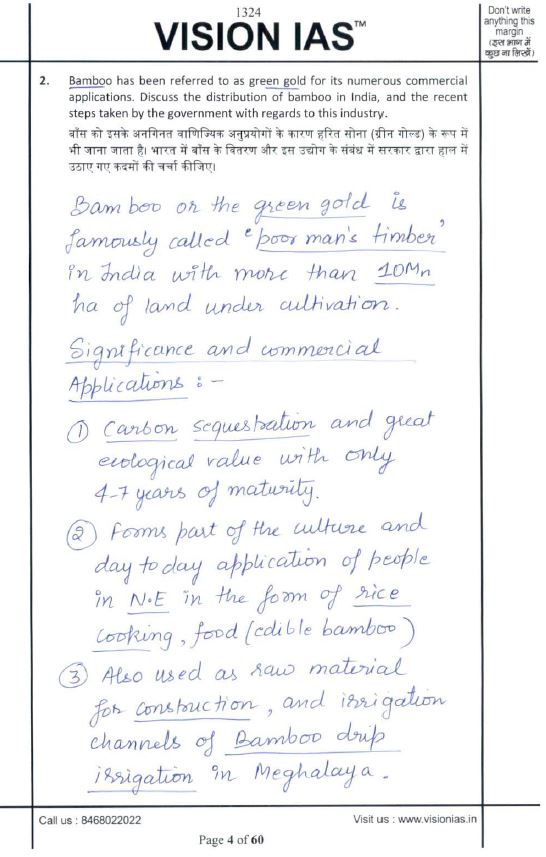 1324
VISION IAS™
Don't write
anything this
margin
(इस भाग में
कुछ ना लिखें)
2. Bamboo has been referred to as green gold for its numerous commercial
applications. Discuss the distribution of bamboo in India, and the recent
steps taken by the government with regards to this industry.
बाँस को इसके अनगिनत वाणिज्यिक अनुप्रयोगों के कारण हरित सोना (ग्रीन गोल्ड) के रूप में
भी जाना जाता है। भारत में बाँस के वितरण और इस उद्योग के संबंध में सरकार द्वारा हाल में
उठाए गए कदमों की चर्चा कीजिए।
Bamboo or the green gold is
famously called "poor man's timber"
in India with more than 10Mn
ha of land under cultivation.
Significance and commercial
Applications :-
① Carbon sequestration and great
ecological value with only
4-7 years of maturity.
② Forms part of the culture and
day to day application of people
in N.E in the form of rice
cooking, food (edible bamboo)
③ Also used as raw material
for construction, and irrigation
channels of Bamboo drip
irrigation in Meghalaya.
Call us : 8468022022
Visit us : www.visionias.in
Page 4 of 60